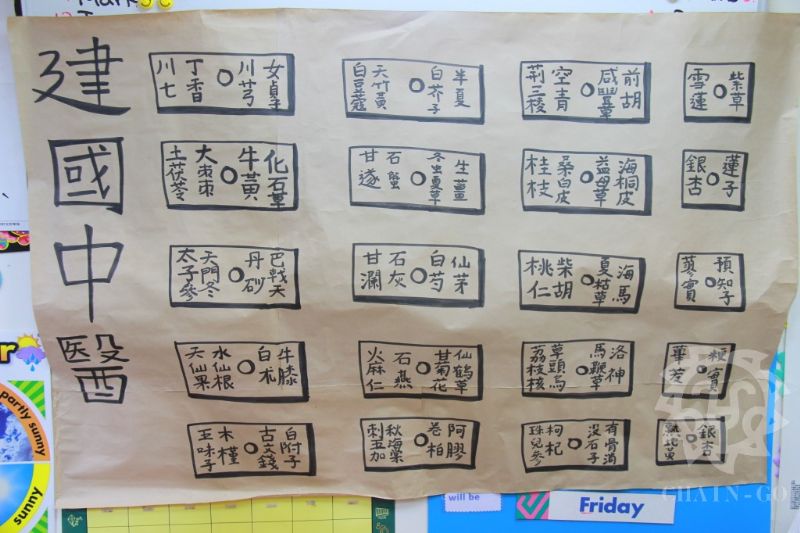 建國中醫
川七 丁香 川芎 女貞子
白豆蔻 天竹黃 白芥子 半夏
荊三稜 空青 咸豐草 前胡
雪蓮 紫草
土茯苓 大棗棗 牛黃 化石草
甘遂 石蟹 冬虫夏草 生薑
桂枝 桑白皮 益母草 海桐皮
銀杏 蓮子
太子參 天門冬 丹砂 巴戟天
甘瀾 石灰 白芍 仙茅
桃仁 柴胡 夏枯草 海馬
蓼實 預知子
天仙果 水仙根 白朮 牛膝
火麻仁 石燕 甘菊花 仙鶴草
荔枝核 草頭烏 馬鞭草 洛神
蓽茇 實
五味子 木槿 古文錢 白附子
刺五加 秋海棠 卷柏 阿膠
珠兒參 枸杞 沒石子 有骨消
熟地黃 銀杏
partly sunny
sunny
will be
Friday
CHAIN-GO